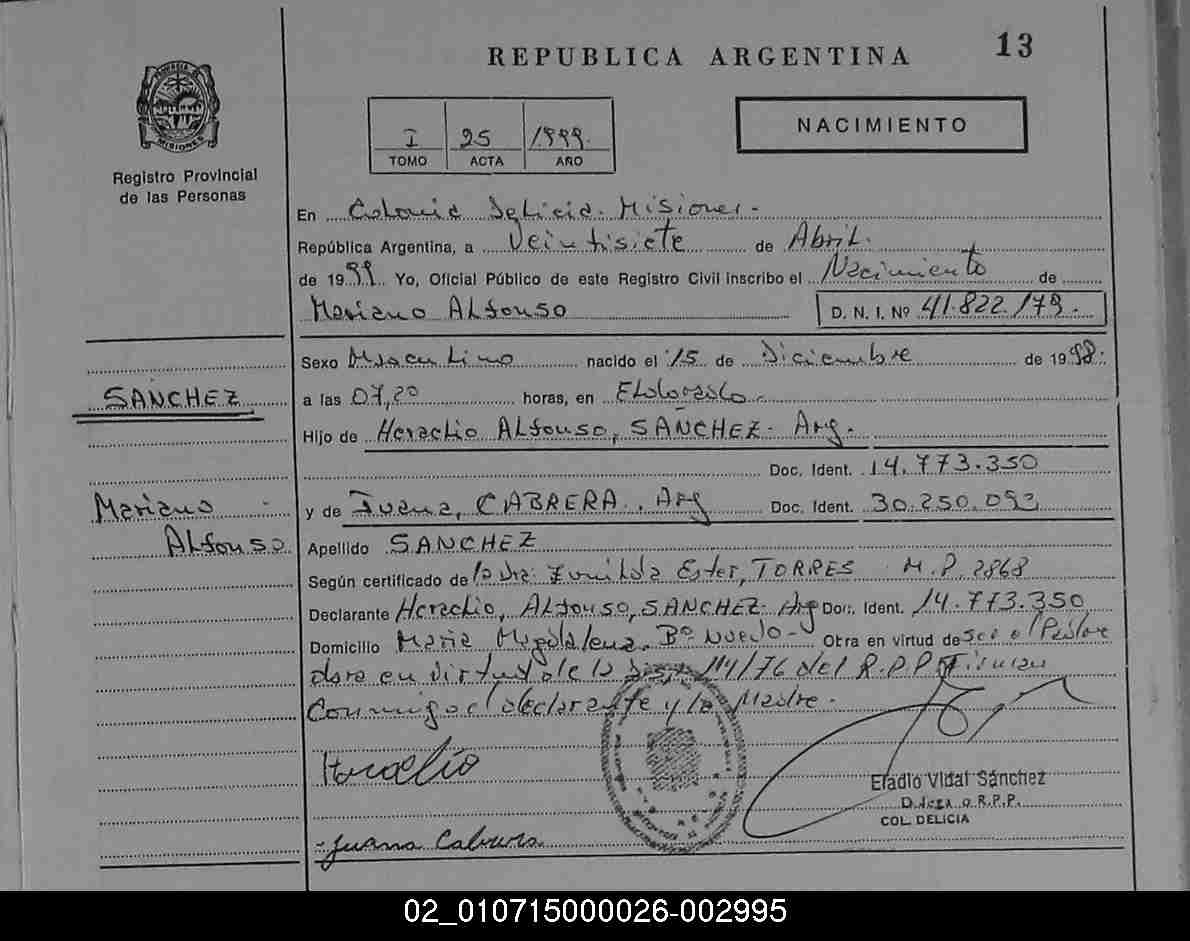 REPUBLICA ARGENTINA
13
PROVINCIA DE MISIONES
Registro Provincial
de las Personas
I 25 1999.
TOMO ACTA AÑO
NACIMIENTO
En Colonia Delicia - Misiones -
República Argentina, a Veintisiete de Abril.
de 1999 Yo, Oficial Público de este Registro Civil inscribo el Nacimiento de
Mariano Alfonso D. N. I. Nº 41.822.179.
Sexo Masculino nacido el 15 de Diciembre de 1998.
SANCHEZ
a las 07,20 horas, en Eldorado.
Hijo de Heraclio Alfonso, SANCHEZ - Arg.
Doc. Ident. 14.773.350
Mariano
Alfonso
y de Juana, CABRERA, Arg Doc. Ident. 30.250.093
Apellido SANCHEZ
Según certificado de la Dra. Zunilda Ester, TORRES M.P. 2868
Declarante Heraclio, Alfonso, SANCHEZ - Arg Doc. Ident. 14.773.350
Domicilio Maria Magdalena, Bº Nuevo - Obra en virtud de ser el Padre
dora en virtud de la Disp. 114/76 del R.P.P. Firman
Conmigo el declarante y la Madre.
Heraclio
Eladio Vidal Sánchez
R.P.P.
COL. DELICIA
Juana Cabrera
02_010715000026-002995